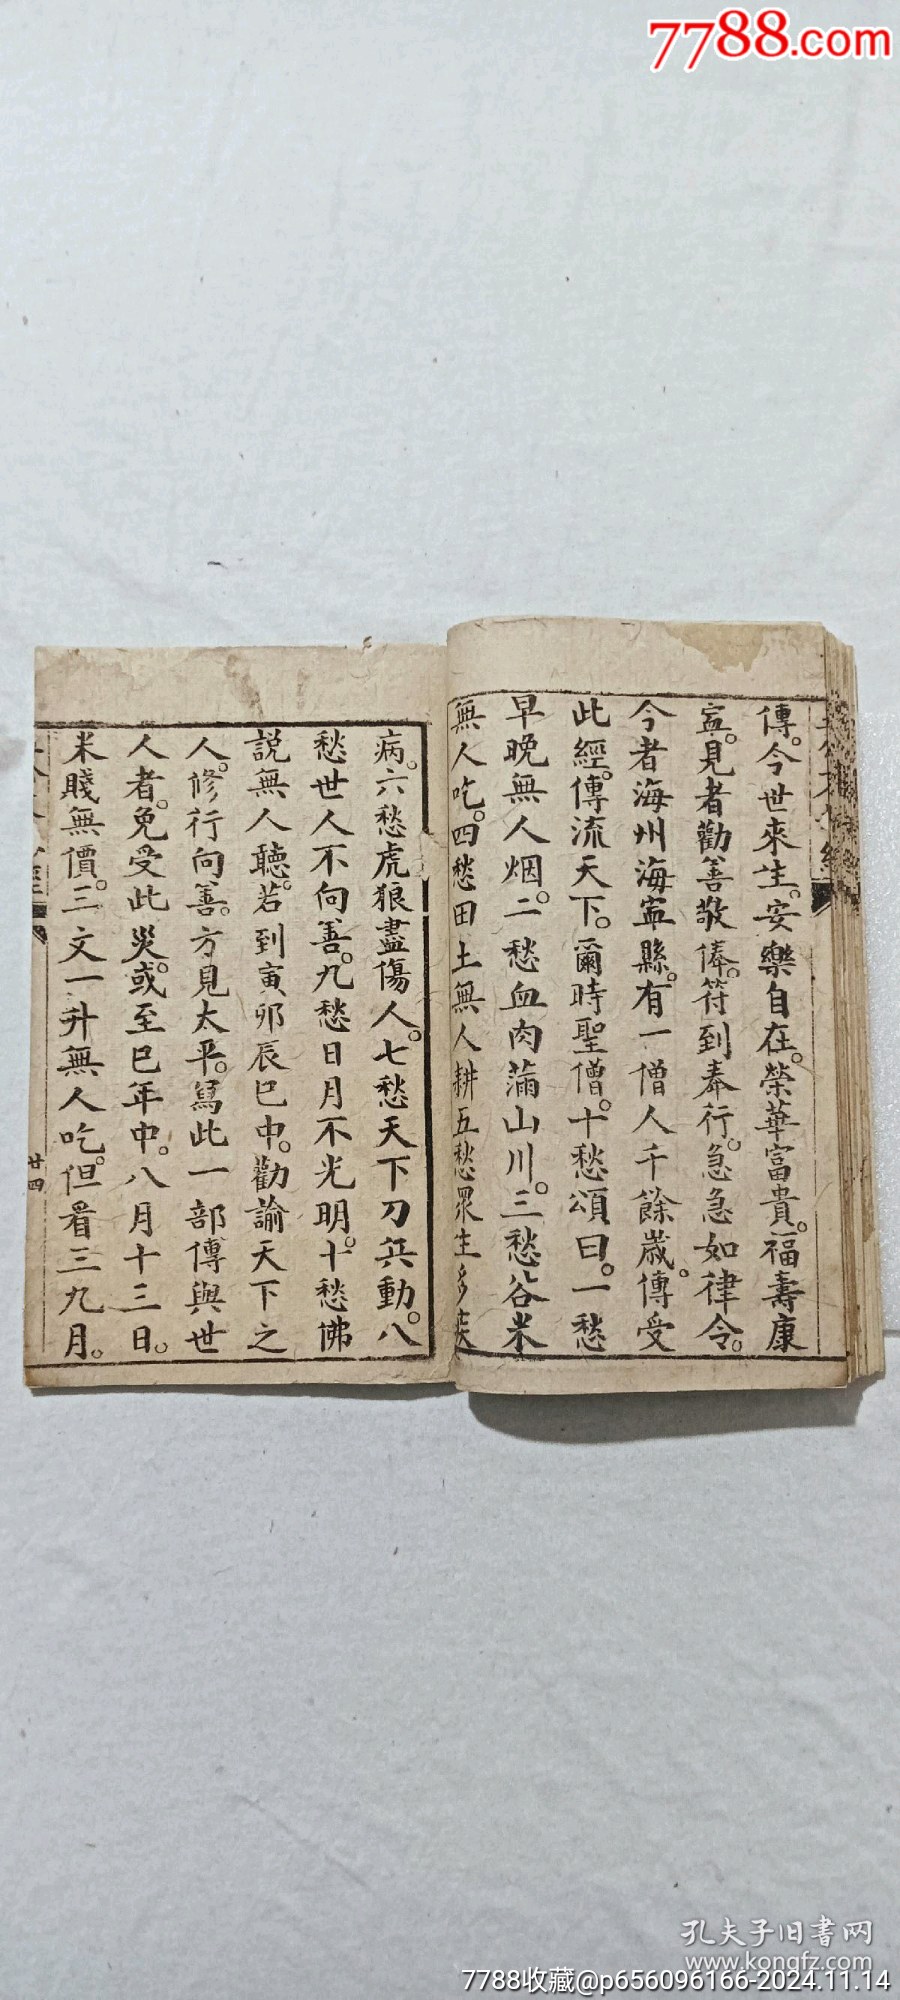 7788.com
傳。今世來生。安樂自在。榮華富貴。福壽康
寍。見者勸善敬俸。符到奉行。急急如律令。
今者海州海寍縣。有一僧人千餘歲傳。受
此經。傳流天下。爾時聖僧。十愁頌曰。一愁
早晚無人烟。二愁血肉滿山川。三愁谷米
無人吃。四愁田土無人耕五愁眾生多疾
病。六愁虎狼盡傷人。七愁天下刀兵動。八
愁世人不向善。九愁日月不光明。十愁佛
說無人聽。若到寅卯辰巳中。勸諭天下之
人。修行向善。方見太平。寫此一部傳與世
人者。免受此災。或至巳年中。八月十三日。
米賤無價。二文一升無人吃。但看三九月。
廿四
孔夫子旧书网
www.kongfz.com
7788收藏@p656096166-2024.11.14